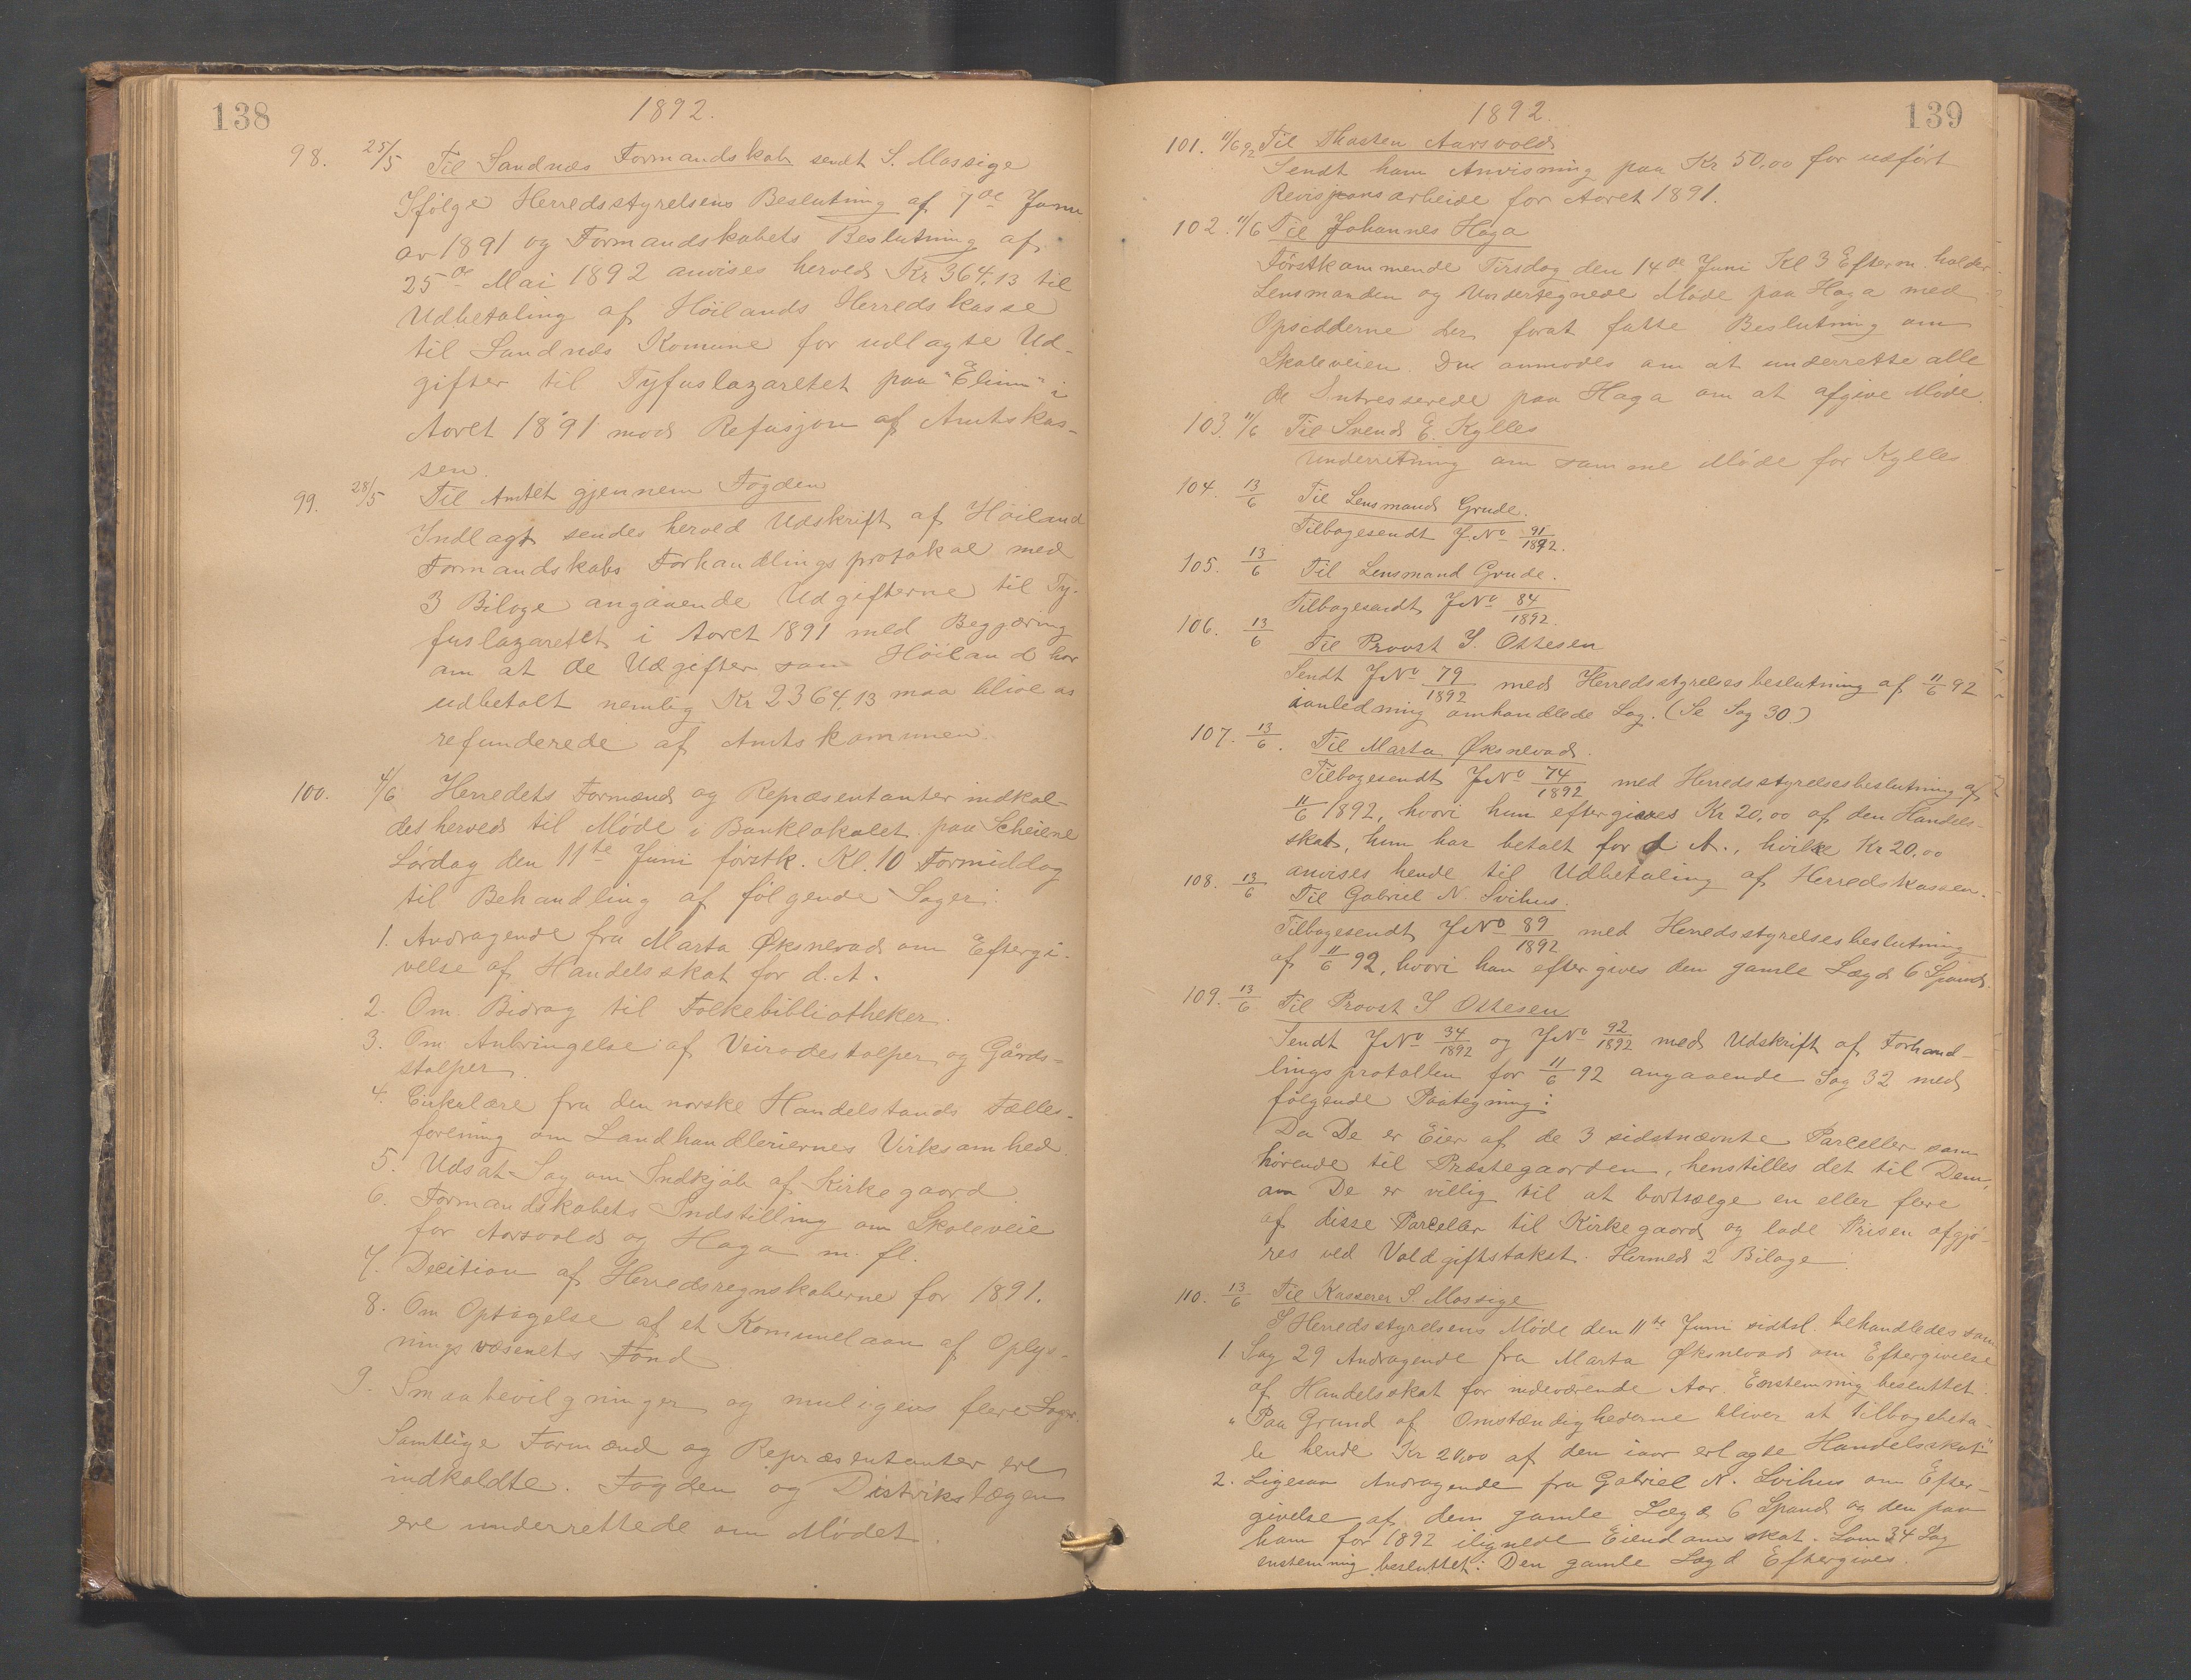 138
1892.
98. 25/5 Til Sandnæs Formandskab sendt S. Mossige
Ifølge Herredsstyrelsens Beslutning af 7de Janu
ar 1891 og Formandskabets Beslutning af
25de Mai 1892 anvises herved Kr 364,13 til
Udbetaling af Høilands Herredskasse
til Sandnæs Komune for udlagte Ud-
gifter til Tyfuslazarettet paa "Elim" i
Aaret 1891 mod Refusjon af Amtskas-
sen.
99. 28/5 Til Amtet gjennem Fogden
Indlagt sendes herved Udskrift af Høiland
Formandskabs Forhandlingsprotokol med
3 Bilage angaaende Udgifterne til Ty-
fuslazarettet i Aaret 1891 med Begjæring
om at de Udgifter som Høiland har
udbetalt nemlig Kr 2364,13 maa blive
refunderede af Amtskommunen.
100. 4/6 Herredets Formænd og Repræsentanter indkal-
des herved til Møde i Banklokalet paa Scheiene
Lørdag den 11te Juni førstk. Kl. 10 Formiddag
til Behandling af følgende Sager:
1. Andragende fra Marta Øksnevad om Eftergi-
velse af Handelsskat for d. A.
2. Om Bidrag til Folkebibliotheker.
3. Om Anbringelse af Veirodestolper og Gaards-
stolper.
4. Cirkulære fra den norske Handelstands Fælles-
forening om Landhandleriernes Virksomhed.
5. Udsat Sag om Indkjøb af Kirkegaard.
6. Formandskabets Indstilling om Skoleveie
for Aarsvold og Haga m. fl.
7. Decition af Herredsregnskaberne for 1891.
8. Om Optagelse af et Komunelaan af Oplys-
ningsvæsenets Fond
9. Smaabevilgninger og muligens flere Sager.
Samtlige Formænd og Repræsentanter ere
indkaldte. Fogden og Distrikslægen
ere underrettede om Mødet.
139
1892.
101. 11/6 92 Til Thosten Aarsvold
Sendt ham Anvisning paa Kr 50,00 for udført
Revisjonsarbeide for Aaret 1891.
102. 11/6 Til Johannes Haga
Førstkommende Tirsdag den 14de Juni Kl 3 Efterm. holder
Lensmanden og Undertegnede Møde paa Haga med
Opsidderne der forat fatte Beslutning om
Skoleveien. Du anmodes om at underrette alle
de Intresserede paa Haga om at afgive Møde.
103. 11/6 Til Svend E. Kylles
Underretning om samme Møde for Kylles
104. 13/6 Til Lensmand Grude.
Tilbagesendt J.No 91/1892.
105. 13/6 Til Lensmand Grude.
Tilbagesendt JNo 84/1892.
106. 13/6 Til Provst I. Ottesen
Sendt JNo 79/1892 med Herredsstyrelsesbeslutning af 11/6 92
ianledning omhandlede Sag. (Se Sag 30.)
107. 13/6. Til Marta Øksnevad.
Tilbagesendt JNo 74/1892 med Herredsstyrelsesbeslutning af
11/6 1892, hvori hun eftergives Kr 20,00 af den Handels-
skat, hun har betalt for d. A., hvilke Kr 20,00
anvises hende til Udbetaling af Herredskassen.
108. 13/6 Til Gabriel N Svihus.
Tilbagesendt JNo 89/1892 med Herredsstyrelsesbeslutning
af 11/6 92, hvori han eftergives den gamle Lægd 6 Spand.
109. 13/6 Til Provst I Ottesen
Sendt JNo 34/1892 og JNo 92/1892 med Udskrift af Forhand-
lingsprotollen for 11/6 92 angaaende Sag 32 med
følgende Paategning:
Da De er Eier af de 3 sidstnævnte Parceller som
hørende til Præstegaarden, henstilles det til Dem,
om De er villig til at bortsælge en eller flere
af disse Parceller til Kirkegaard og lade Prisen afgjø-
res ved Voldgiftstakst. Hermed 2 Bilage.
110. 13/6 Til Kasserer S. Mossige
I Herredsstyrelsens Møde den 11te Juni sidstl. behandledes som
1. Sag 29 Andragende fra Marta Øksnevad om Eftergivelse
af Handelsskat for indeværende Aar. Enstemmig besluttet.
"Paa Grund af Omstændighederne bliver at tilbagebeta-
le hende Kr 20,00 af den iaar erlagte Handelsskat"
2. Ligesaa Andragende fra Gabriel N. Svihus om Efter-
givelse af den gamle Lægd 6 Spand og den paa
ham for 1892 ilignede Eiendomsskat. Som 34 Sag
enstemmig besluttet: Den gamle Lægd Eftergives.